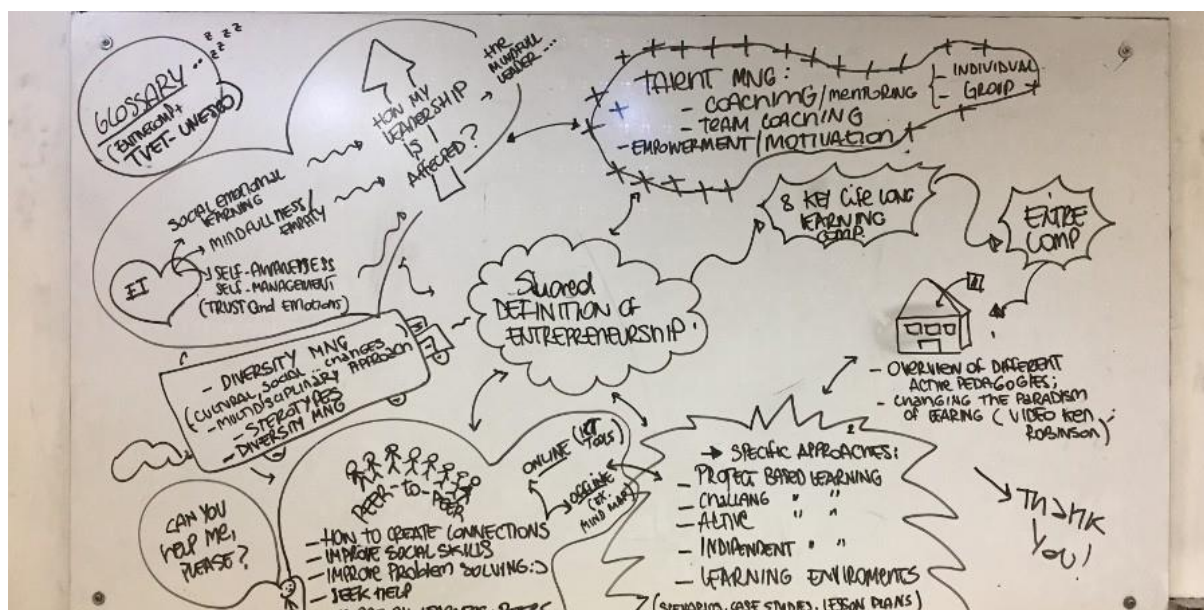 z z z
z z
GLOSSARY...
(ENTRECOMP+
TVET-UNESCO)
HOW MY
LEADERSHIP
IS
AFFECTED?
the
MINDFULL
LEADER...
SOCIAL EMOTIONAL
LEARNING
MINDFULLNESS/
EMPATY
EI
SELF-AWARENESS
SELF-MANAGEMENT
(TRUST and EMOTIONS)
TALENT MNG:
- COACHING/MENTORING
- TEAM COACHING
- EMPOWERMENT/MOTIVATION
- INDIVIDUAL
- GROUP
8 KEY LIFE LONG
LEARNING
COMP.
ENTRE
COMP
Shared
DEFINITION OF
ENTREPRENEURSHIP.
- DIVERSITY MNG
(CULTURAL, SOCIAL... CHANGES
- MULTIDISCIPLINARY APPROACH
- STEROTYPES
- DIVERSITY MNG
- OVERVIEW OF DIFFERENT
ACTIVE PEDAGOGIES;
- CHANGING THE PARADISM
OF LEARING (VIDEO KEN
ROBINSON);
THANK
YOU!
CAN YOU
HELP ME,
PLEASE?
PEER-TO-PEER
- HOW TO CREATE CONNECTIONS
- IMPROVE SOCIAL SKILLS
- IMPROVE PROBLEM SOLVING:)
- SEEK HELP
ONLINE (ICT
TOOLS)
OFFLINE
(EX.
MIND MAP)
→ SPECIFIC APPROACHES:
- PROJECT BASED LEARNING
- CHALLANG " "
- ACTIVE " "
- INDIPENDENT " "
- LEARNING ENVIROMENTS
(SCENARIOS, CASE STUDIES, LESSON PLANS)